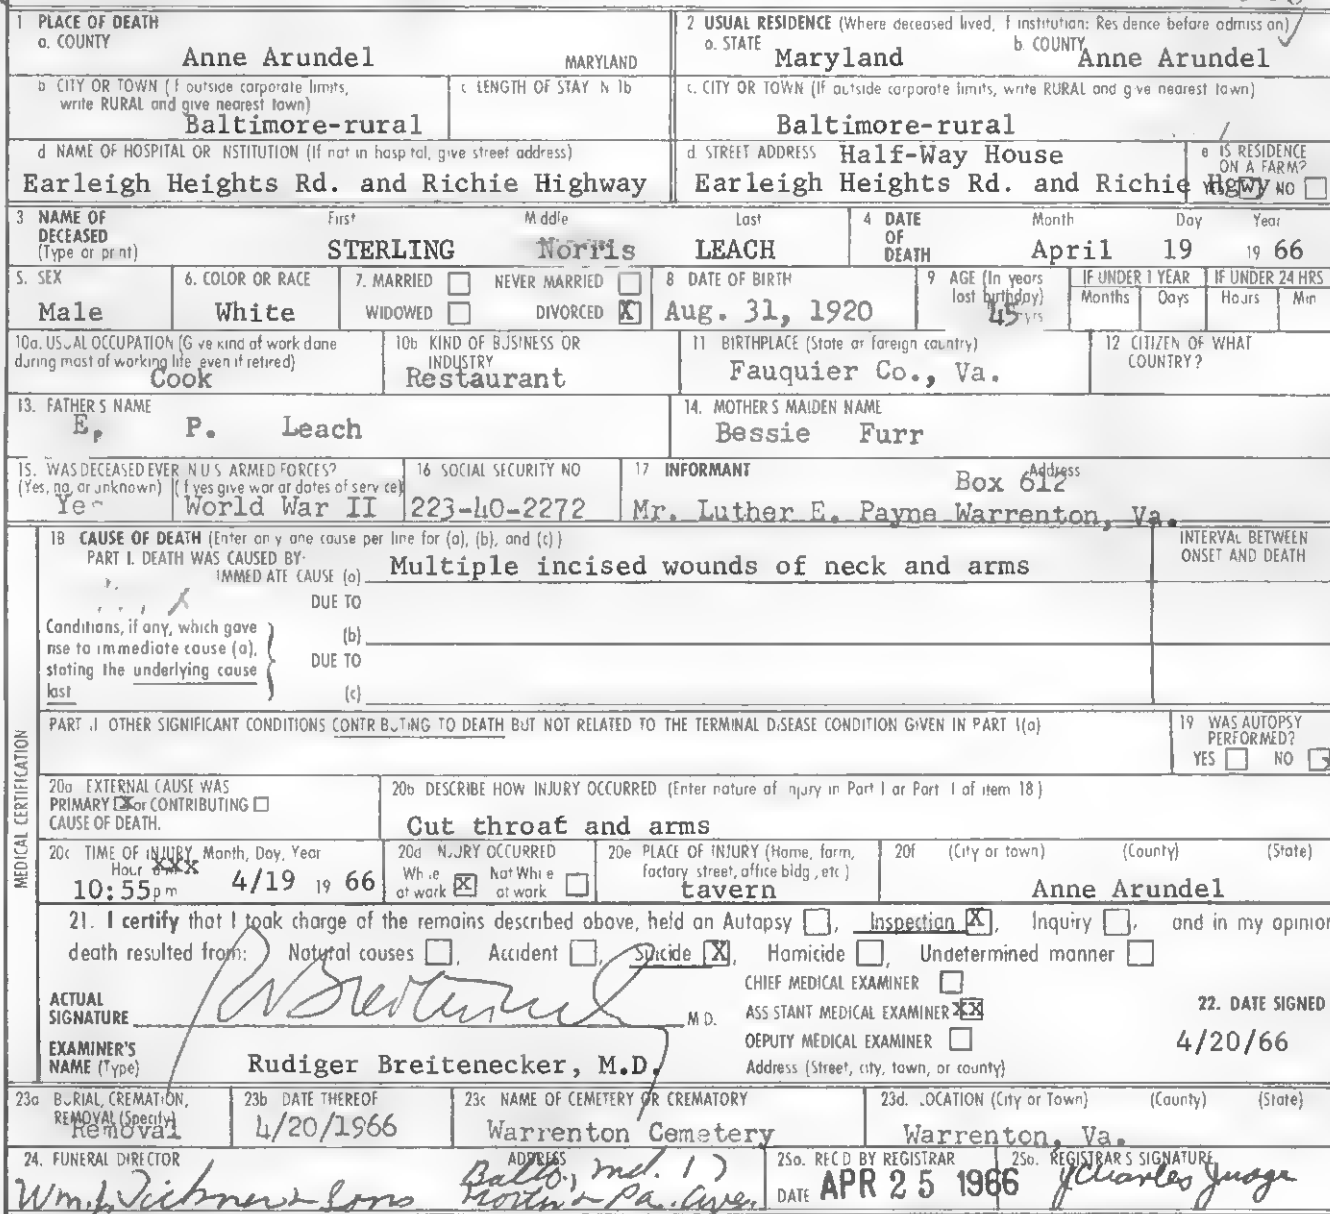 1 PLACE OF DEATH
a. COUNTY
Anne Arundel MARYLAND
2 USUAL RESIDENCE (Where deceased lived, f institution: Res dence before admiss on)
a. STATE Maryland b. COUNTY Anne Arundel
b CITY OR TOWN ( f outside corporate limits, write RURAL and give nearest town)
Baltimore-rural
c LENGTH OF STAY N 1b
c. CITY OR TOWN (If outside corporate limits, write RURAL and g ve nearest town)
Baltimore-rural
d NAME OF HOSPITAL OR NSTITUTION (If not in hosp tal, give street address)
Earleigh Heights Rd. and Richie Highway
d STREET ADDRESS Half-Way House
Earleigh Heights Rd. and Richie Hgwy
e IS RESIDENCE ON A FARM?
YES NO
3 NAME OF DECEASED (Type or pr nt)
First M ddle Last
STERLING Norris LEACH
4 DATE OF DEATH
Month Day Year
April 19 19 66
5. SEX
Male
6. COLOR OR RACE
White
7. MARRIED NEVER MARRIED
WIDOWED DIVORCED X
8 DATE OF BIRTH
Aug. 31, 1920
9 AGE (In years last birthday)
45 yrs
IF UNDER 1 YEAR
Months Days
IF UNDER 24 HRS
Hours Min
10a. USUAL OCCUPATION (G ve kind of work done during most of working life even if retired)
Cook
10b KIND OF BUSINESS OR INDUSTRY
Restaurant
11 BIRTHPLACE (State or foreign country)
Fauquier Co., Va.
12 CITIZEN OF WHAT COUNTRY?
13. FATHER S NAME
E, P. Leach
14. MOTHER S MAIDEN NAME
Bessie Furr
15. WAS DECEASED EVER N U S ARMED FORCES?
(Yes, no, or unknown) ( f yes give war or dates of serv ce)
Yes World War II
16 SOCIAL SECURITY NO
223-40-2272
17 INFORMANT Address
Box 612
Mr. Luther E. Payne Warrenton, Va.
MEDICAL CERTIFICATION
18 CAUSE OF DEATH (Enter on y one cause per line for (a), (b), and (c) )
PART I. DEATH WAS CAUSED BY:
IMMED ATE CAUSE (a) Multiple incised wounds of neck and arms
INTERVAL BETWEEN ONSET AND DEATH
DUE TO
(b)
Conditions, if any, which gave rise to immediate cause (a), stating the underlying cause last
DUE TO
(c)
PART I OTHER SIGNIFICANT CONDITIONS CONTR BUTING TO DEATH BUT NOT RELATED TO THE TERMINAL DISEASE CONDITION GIVEN IN PART I(a)
19 WAS AUTOPSY PERFORMED?
YES NO
20a EXTERNAL CAUSE WAS
PRIMARY X or CONTRIBUTING
CAUSE OF DEATH.
20b DESCRIBE HOW INJURY OCCURRED (Enter nature of njury in Part I or Part I of item 18)
Cut throat and arms
20c TIME OF INJURY Month, Day, Year
Hour xxx
10:55 pm 4/19 19 66
20d NJURY OCCURRED
Wh le at work X Not Whi e at work
20e PLACE OF INJURY (Home, farm, factory street, office bldg , etc )
tavern
20f (City or town) (County) (State)
Anne Arundel
21. I certify that I took charge of the remains described above, held an Autopsy , Inspection X, Inquiry , and in my opinion
death resulted from: Natural causes , Accident , Suicide X, Homicide , Undetermined manner
CHIEF MEDICAL EXAMINER
ACTUAL SIGNATURE R Breitenecker M D.
ASS STANT MEDICAL EXAMINER XX
22. DATE SIGNED
DEPUTY MEDICAL EXAMINER
4/20/66
EXAMINER'S NAME (Type) Rudiger Breitenecker, M.D.
Address (Street, city, town, or county)
23a BURIAL, CREMATION, REMOVAL (Specify)
Removal
23b DATE THEREOF
4/20/1966
23c NAME OF CEMETERY OR CREMATORY
Warrenton Cemetery
23d. LOCATION (City or Town) (County) (State)
Warrenton, Va.
24. FUNERAL DIRECTOR ADDRESS
Wm. J. Tickner & Sons Balto., Md. 17
North & Pa. Aves.
25a. REC D BY REGISTRAR
DATE APR 25 1966
25b. REGISTRAR S SIGNATURE
J Charles Judge